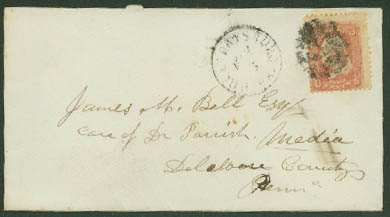 James M. Bell Esq
care of Dr Parrish, Media
Delaware County
Penn